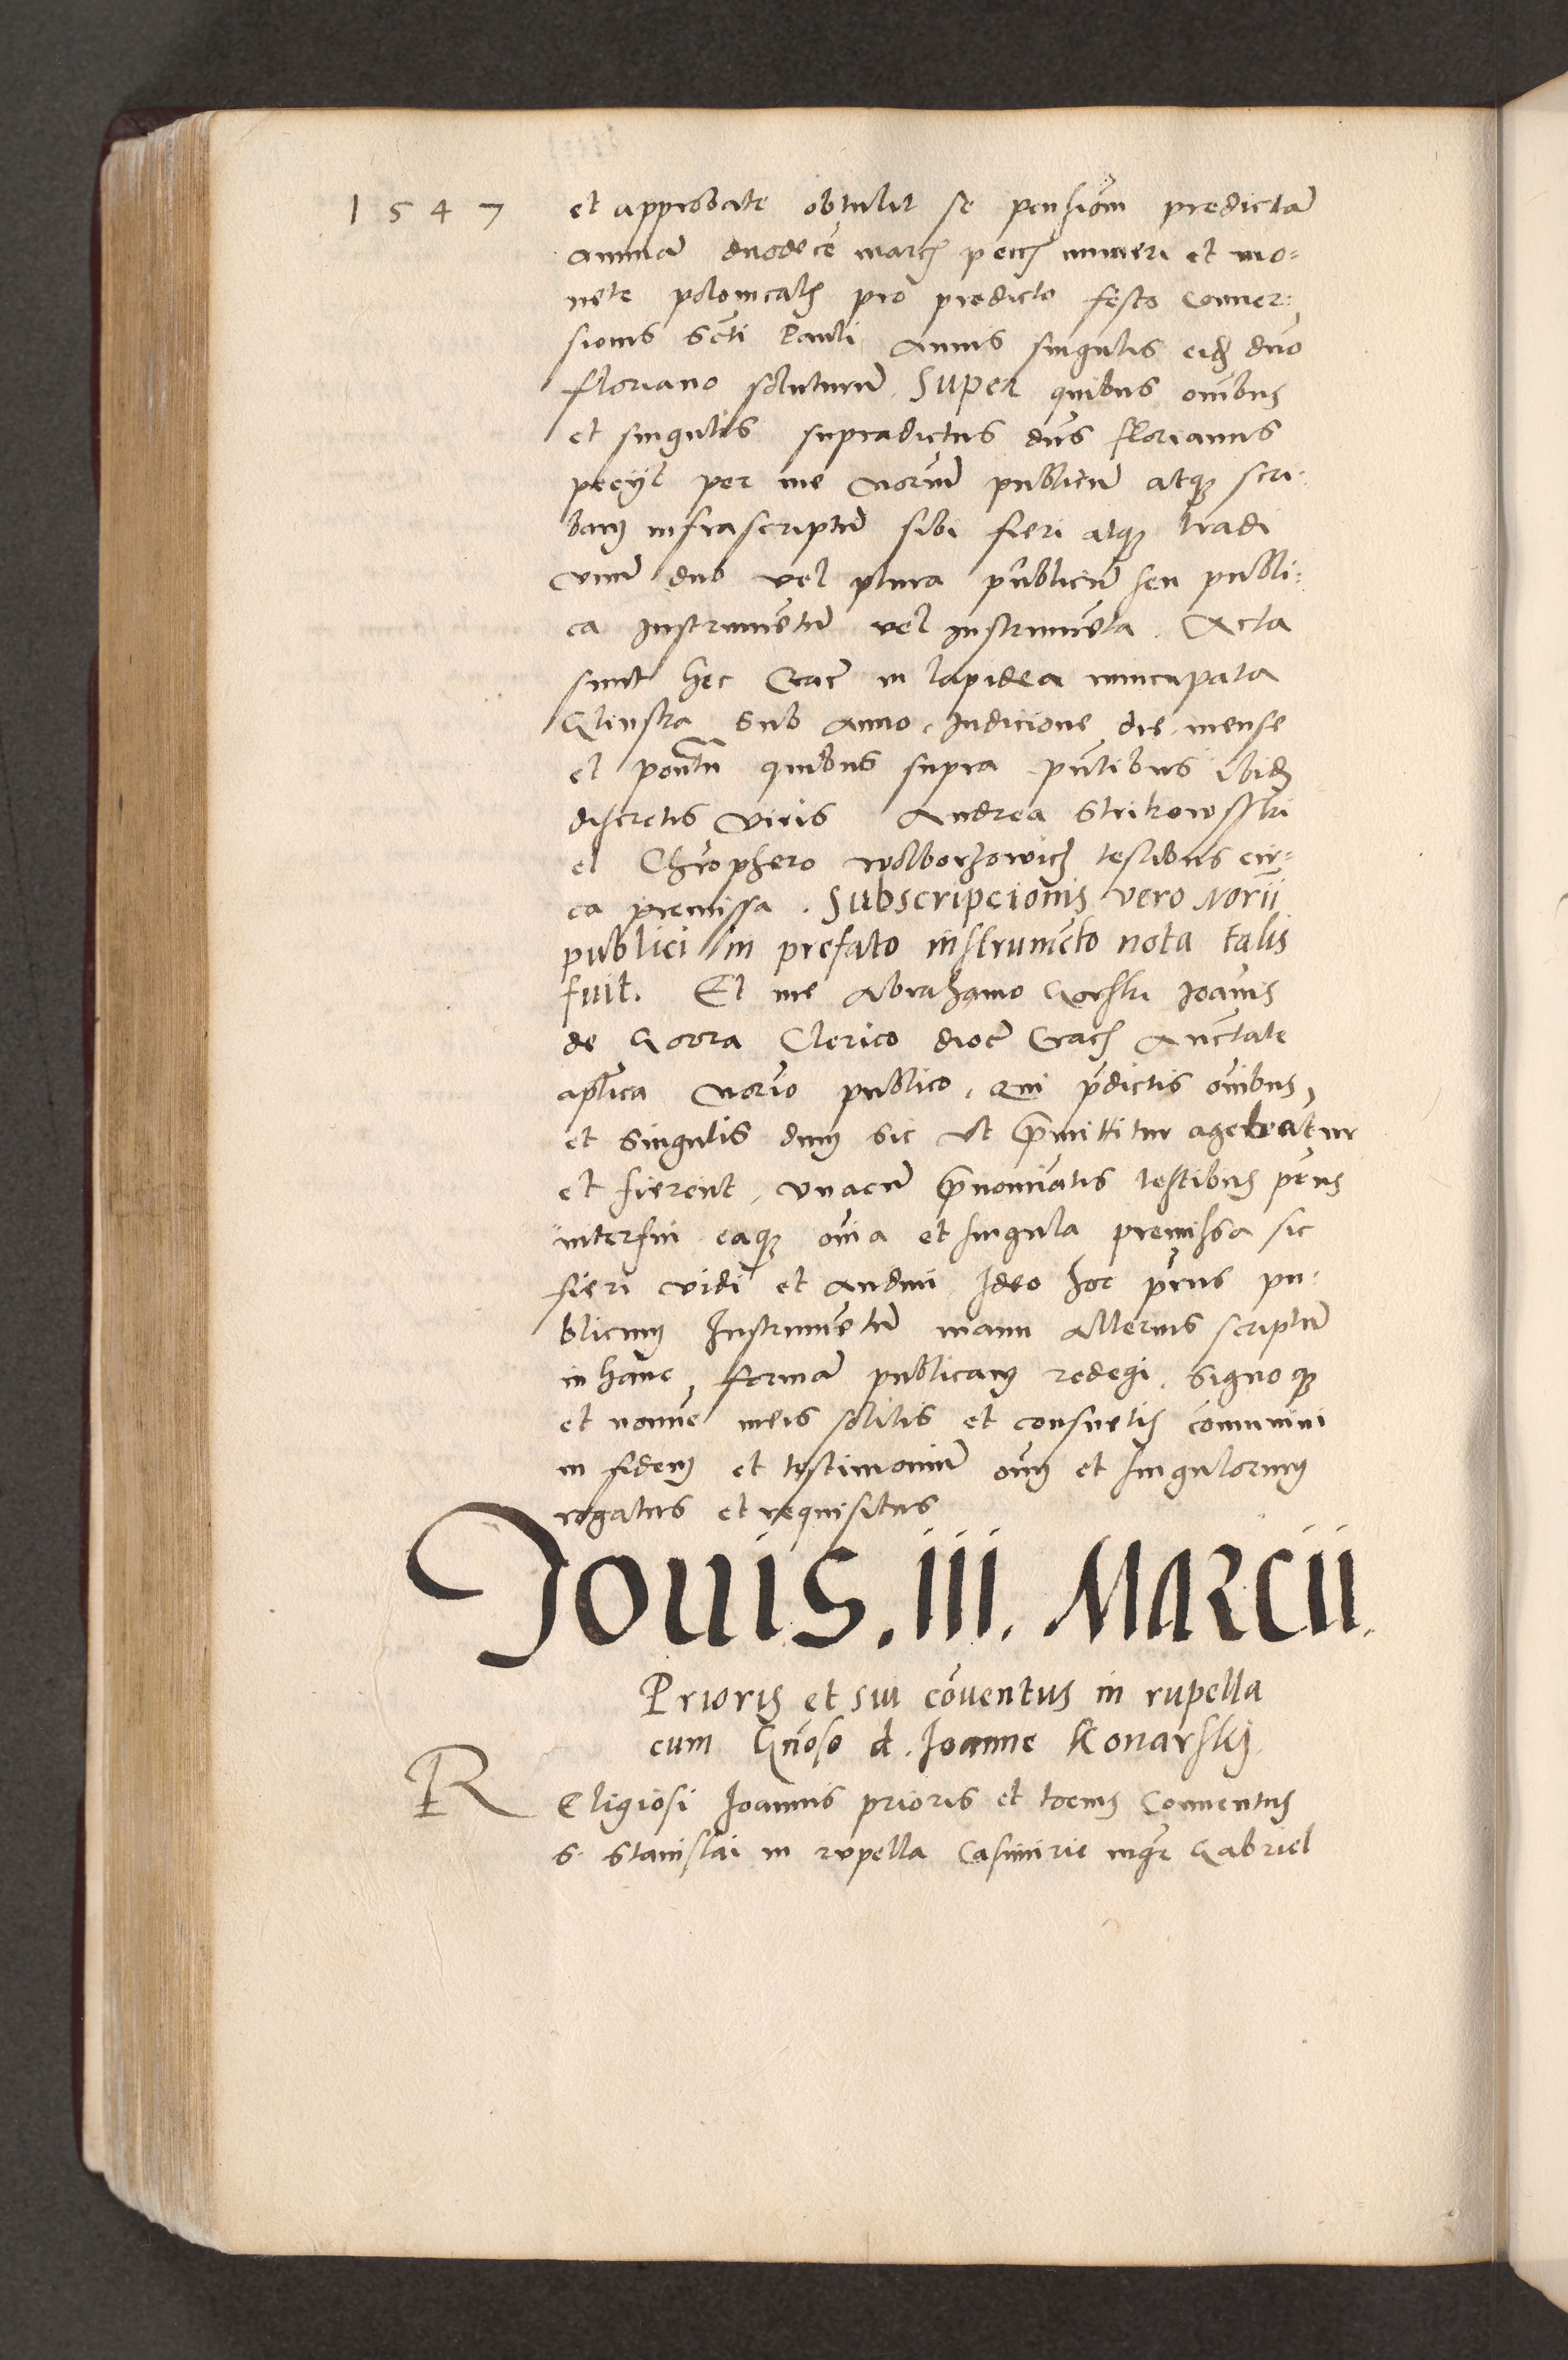 1547
et approbate obtulit se pensiōm predictā
annuā duodecē marcȝ peccȝ numeri et mo=
nete polonicalȝ pro predicto festo Conuer=
sionis Scti Pauli Annis singulis eidȝ dno
Floriano soluturū. Super quibus oībus
et singulis supradictus dns Florianus
pecijt per me Norium publicū atqȝ scri=
bam infrascriptū sibi fieri atqȝ tradi
vnū duo vel plura publicū seu publi=
ca Instrumētū vel instrumēta. Acta
sunt hec Crac in lapidea nuncupata
Clinska Sub Anno. Indicione die. mense
et pontu quibus supra pntibus ibidȝ
discretis viris Andrea Strikowsski
et Chrophero wolborzowicȝ testibus cir=
ca premissa. Subscripcionis vero Norii
publici in prefato instrumēto nota talis
fuit. Et me Abrahamo Gorski Joānis
de Goora Clerico dioc Cracȝ Auctate
aplica Norio publico. Qui pdictis oībus
et singulis dum sic vt pmittitur agebātur
et fierent, vnacū pnomiatis testibus pens
interfui eaqȝ oīa et singula premissa sic
fieri vidi et audiui Ideo hoc pens pu=
blicum Instrumētū manu alterius scriptū
in hanc formā publicam redegi. Signoqȝ
et nomīe meis solitis et consuetis cōmuniui
in fidem et testimoniū oīm et singulorum
rogatus et requisitus
Jouis. iii. Marcii.
Prioris et sui cōuentus in rupella
cum Gnoso d. Joanne Konarskj
Religiosi Joannis prioris et tocius Conuentus
S. Stanislai in rupella Casimirie mgr Gabriel